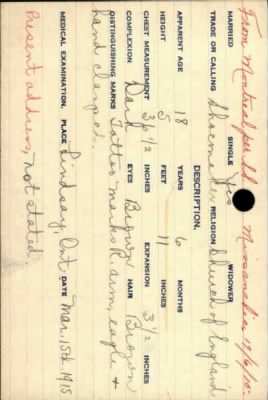 From Montreal per S.S. Missanabie 17/6/15.
MARRIED SINGLE Yes WIDOWER
TRADE OR CALLING Shoemaker RELIGION Church of England
DESCRIPTION.
APPARENT AGE 18 YEARS 6 MONTHS
HEIGHT 5 FEET 11 INCHES
CHEST MEASUREMENT 36 1/2 INCHES EXPANSION 3 1/2 INCHES
COMPLEXION Dark EYES Brown HAIR Brown
DISTINGUISHING MARKS Tattoo marks R. arm, eagle &
hand clasped.
MEDICAL EXAMINATION. PLACE Lindsay, Ont DATE Mar. 15th 1915
Present address, not stated.